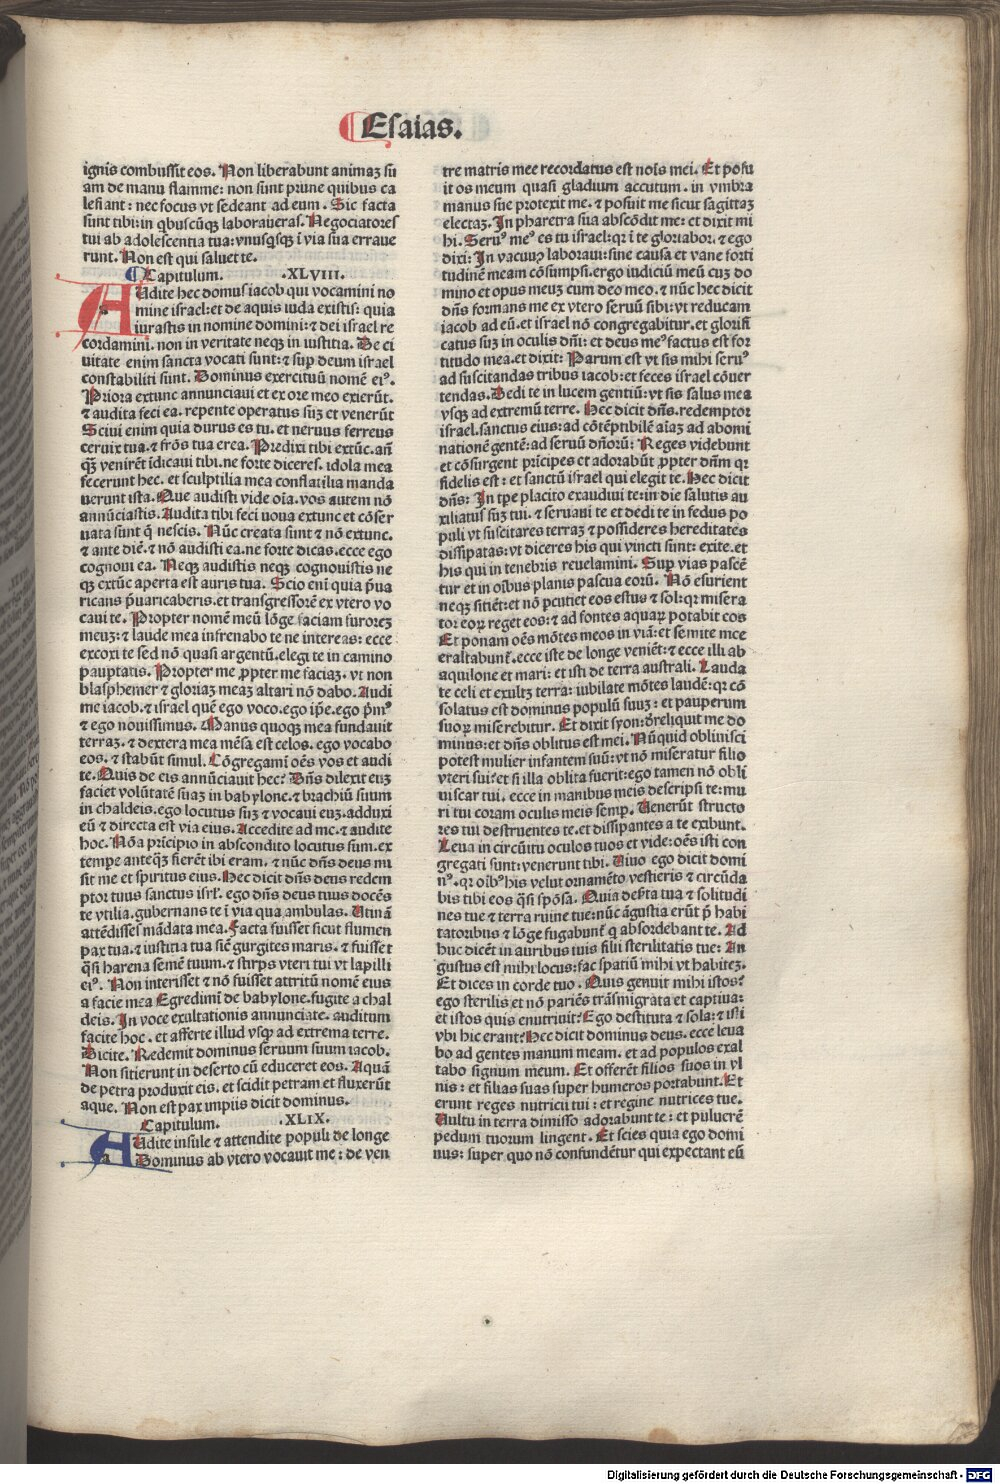 Esaias.
ignis combussit eos. Non liberabunt animaʒ su
am de manu flamme: non sunt prune quibus ca
lefiant: nec focus vt sedeant ad eum. Sic facta
sunt tibi: in qbuscūqʒ laboraueras. Negociatores
tui ab adolescentia tua: vnusqsqʒ ī via sua erraue
runt. Non est qui saluet te.
Capitulum. .XLVIII.
AUdite hec domus iacob qui vocamini no
mine israel: et de aquis iuda existis: quia
iurastis in nomine domini: ⁊ dei israel re
cordamini. non in veritate neqʒ in iustitia. De ci
uitate enim sancta vocati sunt: ⁊ sup deum israel
constabiliti sunt. Dominus exercituū nomē eiꝰ.
Priora extunc annunciaui et ex ore meo exierūt.
⁊ audita feci ea. repente operatus suʒ et venerūt
Sciui enim quia durus es tu. et neruus ferreus
ceruix tua. ⁊ frōs tua erea. Predixi tibi extūc. an̄
qʒ̄ venirēt īdicaui tibi. ne forte diceres. idola mea
fecerunt hec. et sculptilia mea conflatilia manda
uerunt ista. Que audisti vide oīa. vos autem nō
annūciastis. Audita tibi feci noua extunc et cōser
uata sunt q̄ nescis. Nūc creata sunt ⁊ nō extunc.
⁊ ante diē. ⁊ nō audisti ea. ne forte dicas. ecce ego
cognoui ea. Neqʒ audistis neqʒ cognouistis ne
qʒ extūc aperta est auris tua. Scio enī quia p̄ua
ricans p̄uaricaberis. et transgressorē ex vtero vo
caui te. Propter nomē meū lōge faciam furoreʒ
meuʒ: ⁊ laude mea infrenabo te ne intereas: ecce
excoxi te sed nō quasi argentū. elegi te in camino
pauptatis. Propter me ꝓpter me faciaʒ. vt non
blasphemer ⁊ gloriaʒ meaʒ altari nō dabo. Audi
me iacob. ⁊ israel quē ego voco. ego ip̄e. ego p̄mꝰ
⁊ ego nouissimus. Manus quoqʒ mea fundauit
terraʒ. ⁊ dextera mea mēsa est celos. ego vocabo
eos. ⁊ stabūt simul. Cōgregamī oēs vos et audi
te. Quis de eis annūciauit hec? Dn̄s dilexit euʒ
faciet volūtatē suaʒ in babylone. ⁊ brachiū suum
in chaldeis. ego locutus suʒ ⁊ vocaui euʒ. adduxi
eū ⁊ directa est via eius. Accedite ad me. ⁊ audite
hoc. Nō a prīcipio in abscondito locutus sum. ex
tempe anteqʒ̄ fierēt ibi eram. ⁊ nūc dn̄s deus mi
sit me et spiritus eius. Hec dicit dn̄s deus redem
ptor tuus sanctus isrl̄. ego dn̄s deus tuus docēs
te vtilia. gubernans te ī via qua ambulas. Utinā
attēdisses mādata mea. Facta fuisset sicut flumen
pax tua. ⁊ iustitia tua sic̄ gurgites maris. ⁊ fuisset
q̄si harena semē tuum. ⁊ stirps vteri tui vt lapilli
eiꝰ. Non interisset ⁊ nō fuisset attritū nomē eius
a facie mea Egredimī de babylone. fugite a chal
deis. In voce exultationis annunciate. auditum
facite hoc. et afferte illud vsqʒ ad extrema terre.
Dicite. Redemit dominus seruum suum iacob.
Non sitierunt in deserto cū educeret eos. Aquā
de petra produxit eis. et scidit petram et fluxerūt
aque. Non est pax impiis dicit dominus.
Capitulum. .XLIX.
AUdite insule ⁊ attendite populi de longe
Dominus ab vtero vocauit me: de ven
tre matris mee recordatus est nois mei. Et posu
it os meum quasi gladium accutum. in vmbra
manus sue protexit me. ⁊ posuit me sicut sagittaʒ
electaʒ. In pharetra sua abscōdit me: et dixit mi
hi. Seruꝰ meꝰ es tu israel: qr ī te gloriabor. ⁊ ego
dixi: In vacuuʒ laboraui: sine causa et vane forti
tudinē meam cōsumpsi. ergo iudiciū meū cuʒ do
mino et opus meuʒ cum deo meo. ⁊ nūc hec dicit
dn̄s formans me ex vtero seruū sibi: vt reducam
iacob ad eū. et israel nō congregabitur. et glorifi
catus suʒ in oculis dn̄i: et deus meꝰ factus est for
titudo mea. et dixit: Parum est vt sis mihi seruꝰ
ad suscitandas tribus iacob: et feces israel cōuer
tendas. Dedi te in lucem gentiū: vt sis salus mea
vsqʒ ad extremū terre. Hec dicit dn̄s. redemptor
israel. sanctus eius: ad cōtēptibilē aīaʒ ad abomi
nationē gentē: ad seruū dn̄orū: Reges videbunt
et cōsurgent prīcipes et adorabūt ꝓpter dn̄m qr
fidelis est: et sanctū israel qui elegit te. Hec dicit
dn̄s: In tp̄e placito exaudiui te: in die salutis au
xiliatus suʒ tui. ⁊ seruaui te et dedi te in fedus po
puli vt suscitares terraʒ ⁊ possideres hereditates
dissipatas: vt diceres his qui vincti sunt: exite. et
his qui in tenebris reuelamini. Sup vias pascē
tur et in oībus planis pascua eorū. Nō esurient
neqʒ sitiēt: et nō pcutiet eos estus ⁊ sol: qr misera
tor eoꝝ reget eos: ⁊ ad fontes aquaꝝ potabit eos
Et ponam oēs mōtes meos in viā: et semite mee
exaltabunt̄. ecce iste de longe veniēt: ⁊ ecce illi ab
aquilone et mari: et isti de terra australi. Lauda
te celi et exultʒ terra: iubilate mōtes laudē: qr cō
solatus est dominus populū suuʒ: et pauperum
suoꝝ miserebitur. Et dixit syon: dereliquit me do
minus: et dn̄s oblitus est mei. Nūquid obliuisci
potest mulier infantem suū: vt nō miseratur filio
vteri sui? et si illa oblita fuerit: ego tamen nō obli
uiscar tui. ecce in manibus meis descripsi te: mu
ri tui coram oculis meis semp. Uenerūt structo
res tui destruentes te. et dissipantes a te exibunt.
Leua in circūitu oculos tuos et vide: oēs isti con
gregati sunt: venerunt tibi. Uiuo ego dicit domi
nꝰ. qr oībꝰ his velut ornamēto vestieris ⁊ circūda
bis tibi eos q̄si spōsa. Quia deb̄ta tua ⁊ solitudi
nes tue ⁊ terra ruine tue: nūc āgustia erūt p̄ habi
tatoribus ⁊ lōge fugabunt̄ q absordebant te. Ad
huc dicēt in auribus tuis filii sterilitatis tue: An
gustus est mihi locus: fac spatiū mihi vt habiteʒ.
Et dices in corde tuo. Quis genuit mihi istos?
ego sterilis et nō pariēs trāsmigrata et captiua:
et istos quis enutriuit? Ego destituta ⁊ sola: ⁊ isti
vbi hic erant? Hec dicit dominus deus. ecce leua
bo ad gentes manum meam. et ad populos exal
tabo signum meum. Et offerēt filios suos in vl
nis: et filias suas super humeros portabunt. Et
erunt reges nutricii tui: et regine nutrices tue.
Uultu in terra dimisso adorabunt te: et puluerē
pedum tuorum lingent. Et scies quia ego domi
nus: super quo nō confundētur qui expectant eū
Digitalisierung gefördert durch die Deutsche Forschungsgemeinschaft - DFG